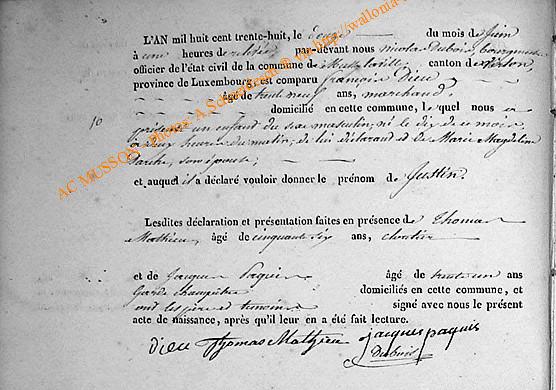 L'AN mil huit cent trente-huit, le douze du mois de Juin
à une heures de relevée par-devant nous nicolas Dubois, bourgmestre
officier de l'état civil de la commune de canton de
province de Luxembourg, est comparu françois Dieu
âgé de trente neuf ans, marchand
domicilié en cette commune, lequel nous
10
présente un enfant du sexe masculin, né le dix de ce mois
à deux heures du matin, de lui déclarant et de Marie Magdeleine
son épouse;
et auquel il a déclaré vouloir donner le prénom de Justin.
Lesdites déclaration et présentation faites en présence de Thomas
Mathieu, âgé de cinquante six ans,
et de Jacques Paquis âgé de trente un ans
Garde champêtre domiciliés en cette commune, et
ont les père et témoins signé avec nous le présent
acte de naissance, après qu'il leur en a été fait lecture.
dieu Thomas Mathieu jacques paquis
Dubois
AC MUSSON - Photos: A. ® via http://wallonia